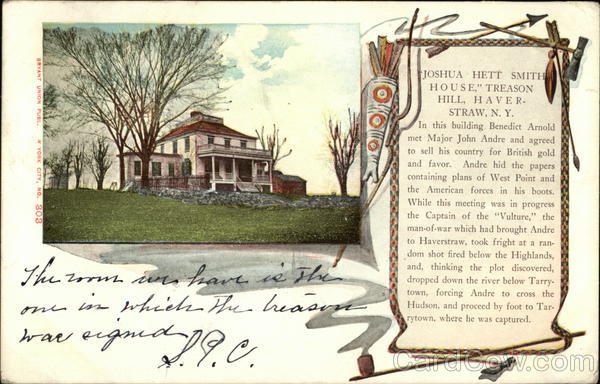 BRYANT UNION PUBL. N YORK CITY, NO. 303
"JOSHUA HETT SMITH
HOUSE," TREASON
HILL, HAVER-
STRAW, N. Y.
In this building Benedict Arnold
met Major John Andre and agreed
to sell his country for British gold
and favor. Andre hid the papers
containing plans of West Point and
the American forces in his boots.
While this meeting was in progress
the Captain of the "Vulture," the
man-of-war which had brought Andre
to Haverstraw, took fright at a ran-
dom shot fired below the Highlands,
and, thinking the plot discovered,
dropped down the river below Tarry-
town, forcing Andre to cross the
Hudson, and proceed by foot to Tar-
rytown, where he was captured.
The room we have is the
one in which the treason
was signed
CardCow.com